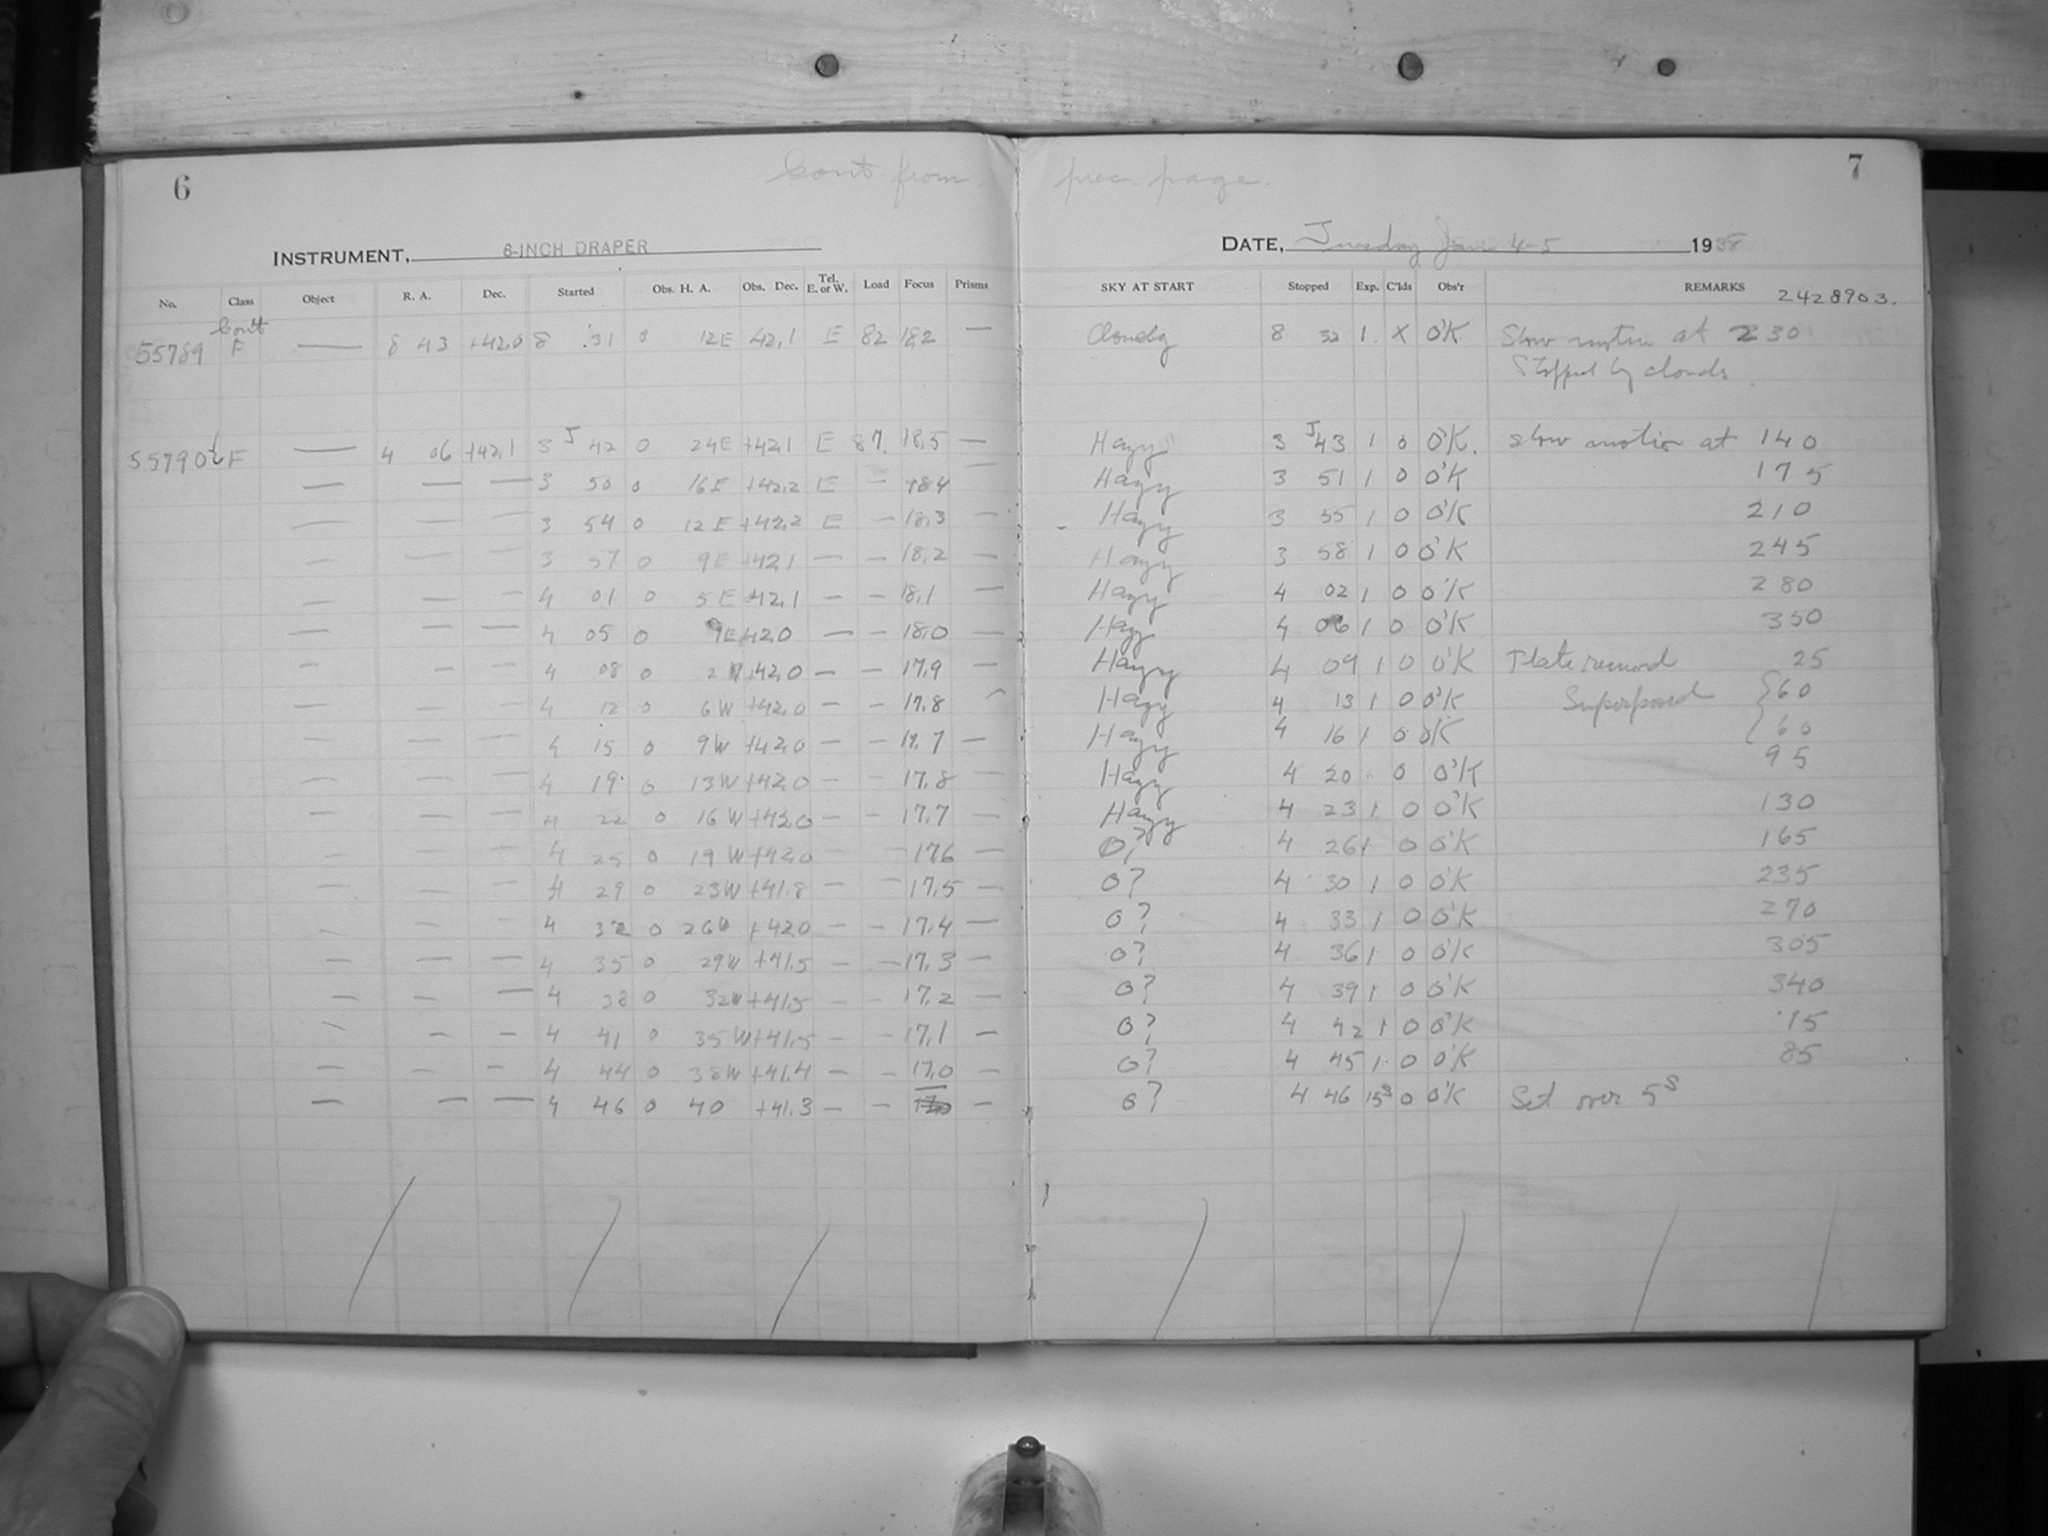 6 Cont from prec. page. 7
INSTRUMENT, 8-INCH DRAPER DATE, Tuesday Jan 4-5 1938
No. Class Object R. A. Dec. Started Obs. H. A. Obs. Dec. Tel. E. or W. Load Focus Prisms SKY AT START Stopped Exp. C'lds Obs'r REMARKS 2428903.
Cont
55789 F — 8 43 +42.0 8 31 0 12E 42.1 E 82 18.2 — Cloudy 8 32 1 X O'K Slow motion at 230
Stopped by clouds
55790 F — 4 06 +42.1 3 42 0 24E +42.1 E 87. 18.5 — Hazy 3 43 1 0 O'K. slow motion at 140
— — — 3 50 0 16E +42.2 E — 18.4 — Hazy 3 51 1 0 O'K 175
— — — 3 54 0 12E +42.2 E — 18.3 — Hazy 3 55 1 0 O'K 210
— — — 3 57 0 9E +42.1 — — 18.2 — Hazy 3 58 1 0 O'K 245
— — — 4 01 0 5E +42.1 — — 18.1 — Hazy 4 02 1 0 O'K 280
— — — 4 05 0 E +42.0 — — 18.0 — Hazy 4 06 1 0 O'K 350
— — — 4 08 0 2W +42.0 — — 17.9 — Hazy 4 09 1 0 O'K Plate removed 25
— — — 4 12 0 6W +42.0 — — 17.8 — Hazy 4 13 1 0 O'K Superposed {60
— — — 4 15 0 9W +42.0 — — 17.7 — Hazy 4 16 1 0 O'K 60
— — — 4 19 0 13W +42.0 — — 17.8 — Hazy 4 20 0 O'K 95
— — — 4 22 0 16W +42.0 — — 17.7 — Hazy 4 23 1 0 O'K 130
— — — 4 25 0 19W +42.0 — — 17.6 — 0? 4 26 1 0 O'K 165
— — — 4 29 0 23W +41.8 — — 17.5 — 0? 4 30 1 0 O'K 235
— — — 4 32 0 26W +42.0 — — 17.4 — 0? 4 33 1 0 O'K 270
— — — 4 35 0 29W +41.5 — — 17.3 — 0? 4 36 1 0 O'K 305
— — — 4 38 0 32W +41.5 — — 17.2 — 0? 4 39 1 0 O'K 340
— — — 4 41 0 35W +41.5 — — 17.1 — 0? 4 42 1 0 O'K 15
— — — 4 44 0 38W +41.4 — — 17.0 — 0? 4 45 1 0 O'K 85
— — — 4 46 0 40 +41.3 — — — 0? 4 46 15s 0 O'K Set over 5s